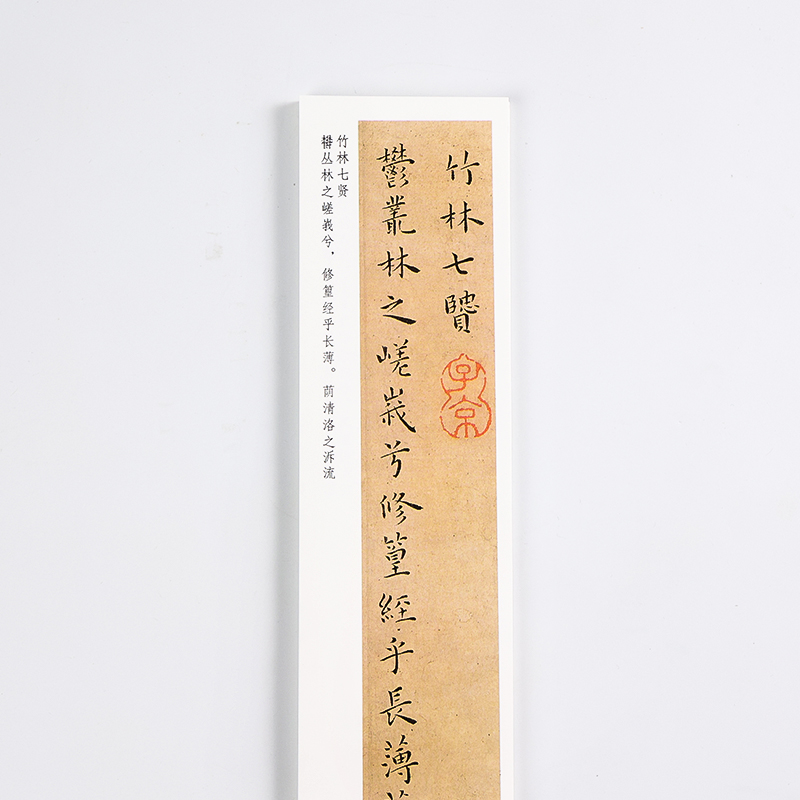 竹林七賢
子京
鬱叢林之嵯峩兮修篁經乎長薄
竹林七贤
丛林之嵯峩兮，修篁经乎长薄。荫清洛之泝流